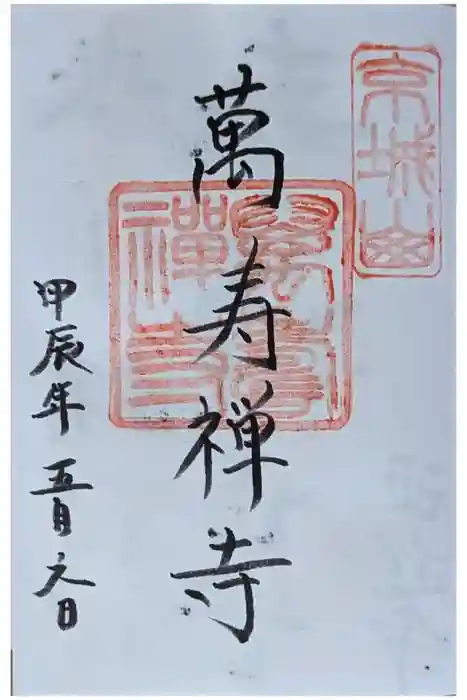 京城山
萬寿禅寺
萬壽禪寺
甲辰年 五月元日